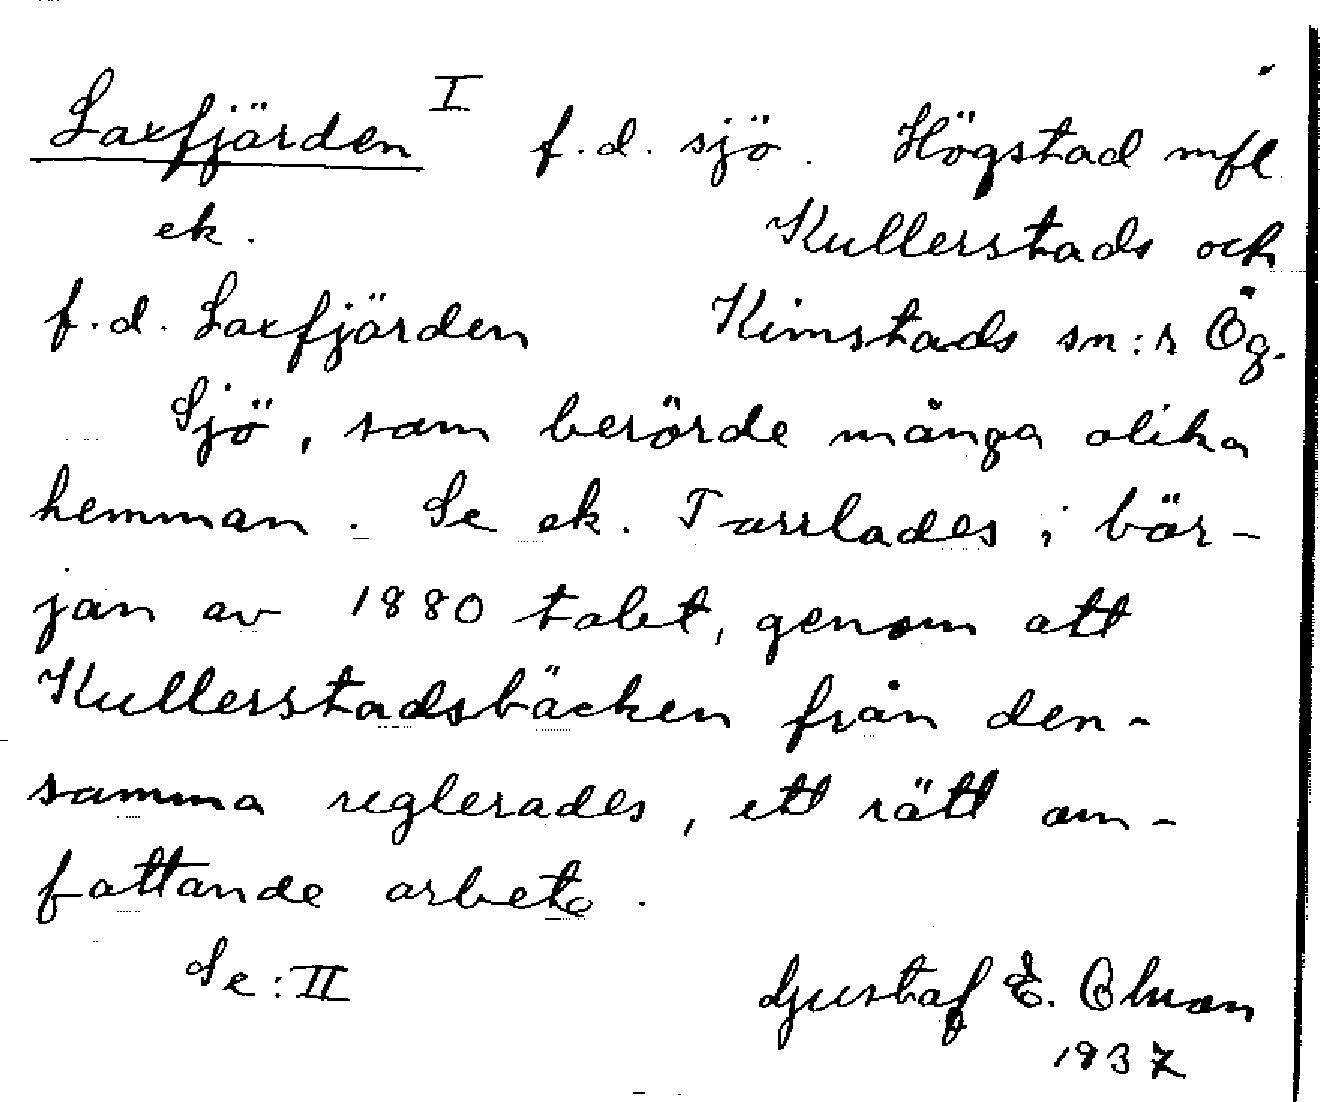 Laxfjärden I f.d. sjö. Högstad mfl
ek. Kullerstads och
f.d. Laxfjärden Kimstads sn:r Ög.
Sjö, som berörde många olika
hemman. Se ek. Torrlades i bör-
jan av 1880 talet, genom att
Kullerstadsbäcken från den-
samma reglerades, ett rätt om-
fattande arbete.
Se: II Gustaf E. Olson
1937